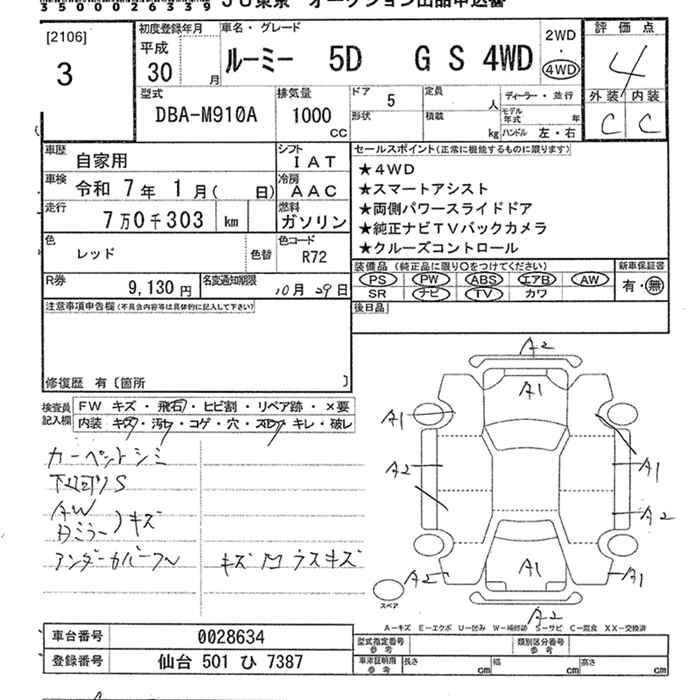 350002639
JU東京 オークション出品申込書
[2106]
3
初度登録年月
平成
30 月
車名・グレード
ルーミー 5D G S 4WD
2WD
・
4WD
評価点
4
外装 内装
C C
型式
DBA-M910A
排気量
1000
cc
ドア
5
形状
定員
人
積載
kg
ディーラー・並行
モデル年式 年
ハンドル 左・右
車歴
自家用
シフト
IAT
車検
令和 7年 1月( 日)
冷房
AAC
走行
7万0千303 km
燃料
ガソリン
色
レッド
色替
色コード
R72
R券
9,130円
名変通知期限
10月 29日
セールスポイント(正常に機能するものに限ります)
★4WD
★スマートアシスト
★両側パワースライドドア
★純正ナビTVバックカメラ
★クルーズコントロール
装備品(純正品に限り○をつけてください)
PS PW ABS エアB AW
SR ナビ TV カワ
新車保証書
有・無
後日品
注意事項申告欄(不具合内容等は具体的に記入して下さい)
修復歴 有〔箇所 〕
検査員
記入欄
FW キズ・飛石・ヒビ割・リペア跡・×要
内装 キズ・汚レ・コゲ・穴・スレ・キレ・破レ
カーペットシミ
下廻りS
AW
キズ
アンダーカバーワレ
キズ 凹 ラスキズ
A2
A1
A1
A2
A1
A2
A1
A2
A1
A2
スペア
A-キズ E-エクボ U-凹み W-補修跡 S-サビ C-腐食 XX-交換済
車台番号
0028634
登録番号
仙台 501 ひ 7387
型式指定番号
参考
類別区分番号
参考
車庫証明用
参考
長さ cm 幅 cm 高さ cm